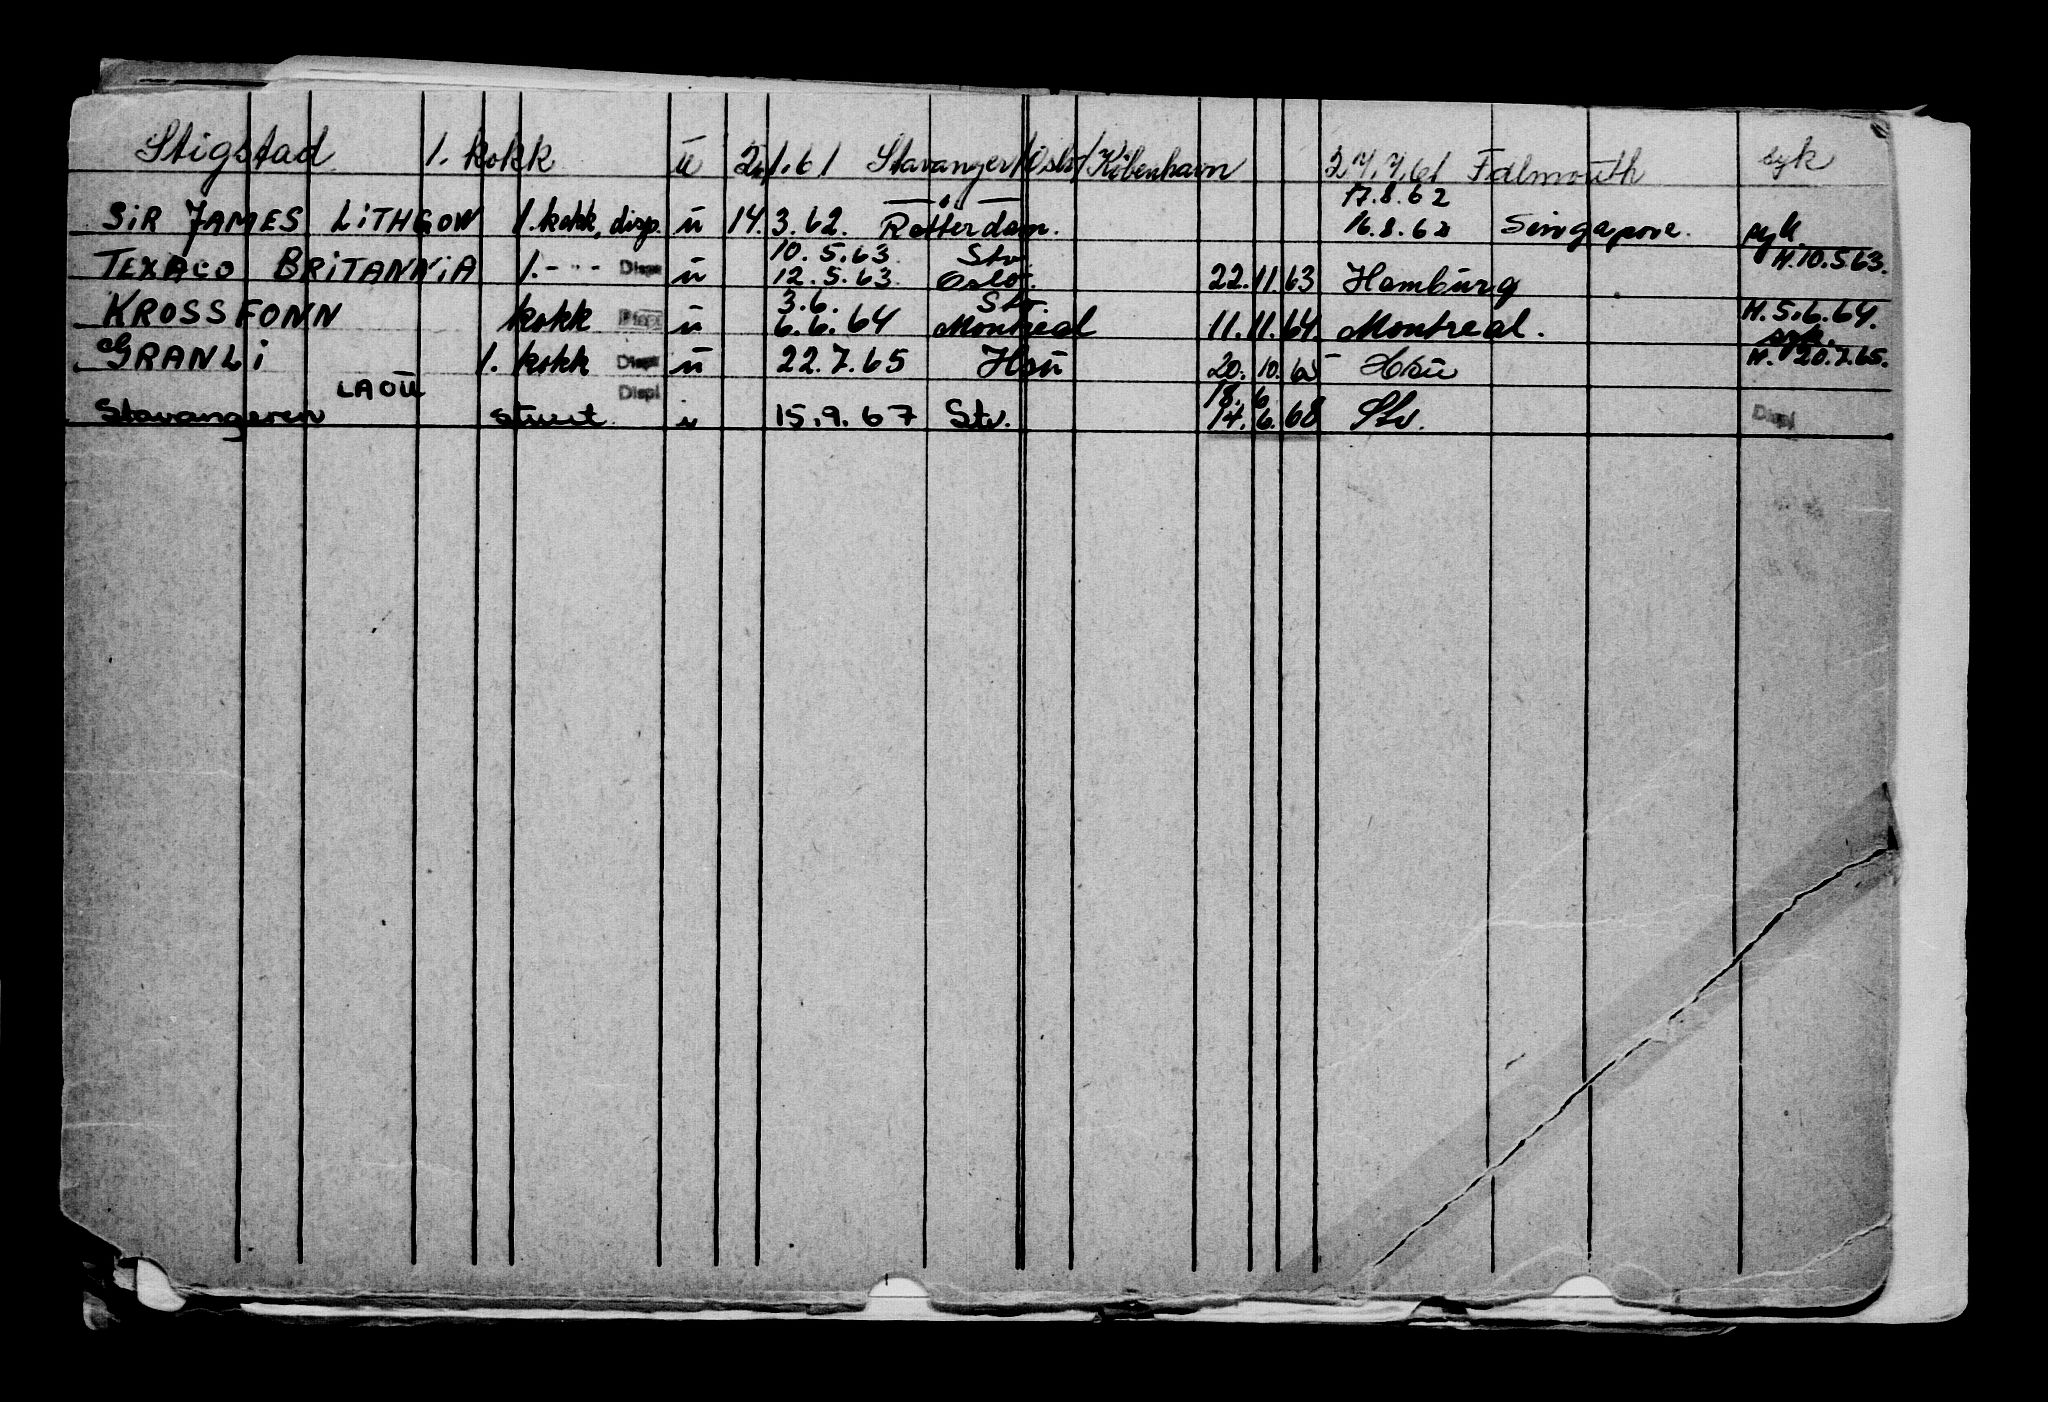 Stigstad 1. kokk u 2.1.61 Stavanger/Oslo/København 27.7.61 Falmouth syk
17.8.62
SIR JAMES LITHGOW 1. kokk, disp. u 14.3.62. Rotterdam. 16.8.62 Singapore. syk
10.5.63 Stv H.10.5.63.
TEXACO BRITANNIA 1. - " - Disp u 12.5.63 Oslo. 22.11.63 Hamburg
3.6. Stv. H.5.6.64.
KROSSFONN kokk Displ u 6.6.64 Montreal 11.11.64. Montreal. syk.
GRANLI 1. kokk Displ u 22.7.65 Hsu 20.10.65 Hsu H. 20.7.65.
LAOU Displ 18.6
Stavangeren stuert u 15.9.67 Stv. 14.6.68 Stv. Displ